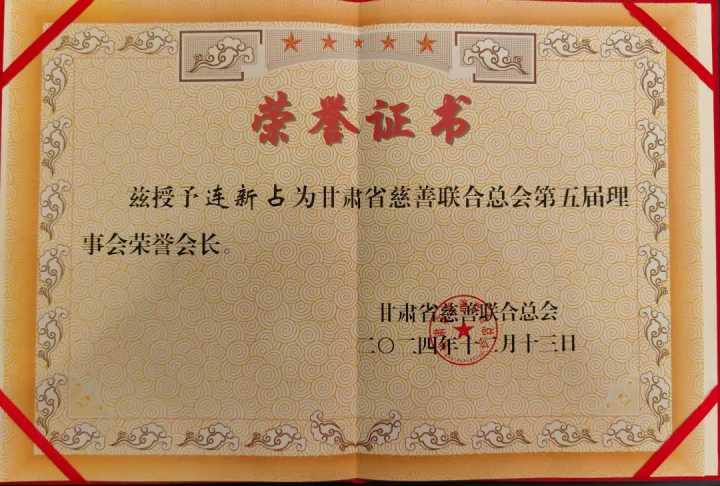 荣誉证书
兹授予连新占为甘肃省慈善联合总会第五届理
事会荣誉会长。
甘肃省慈善联合总会
二〇二四年十二月十三日